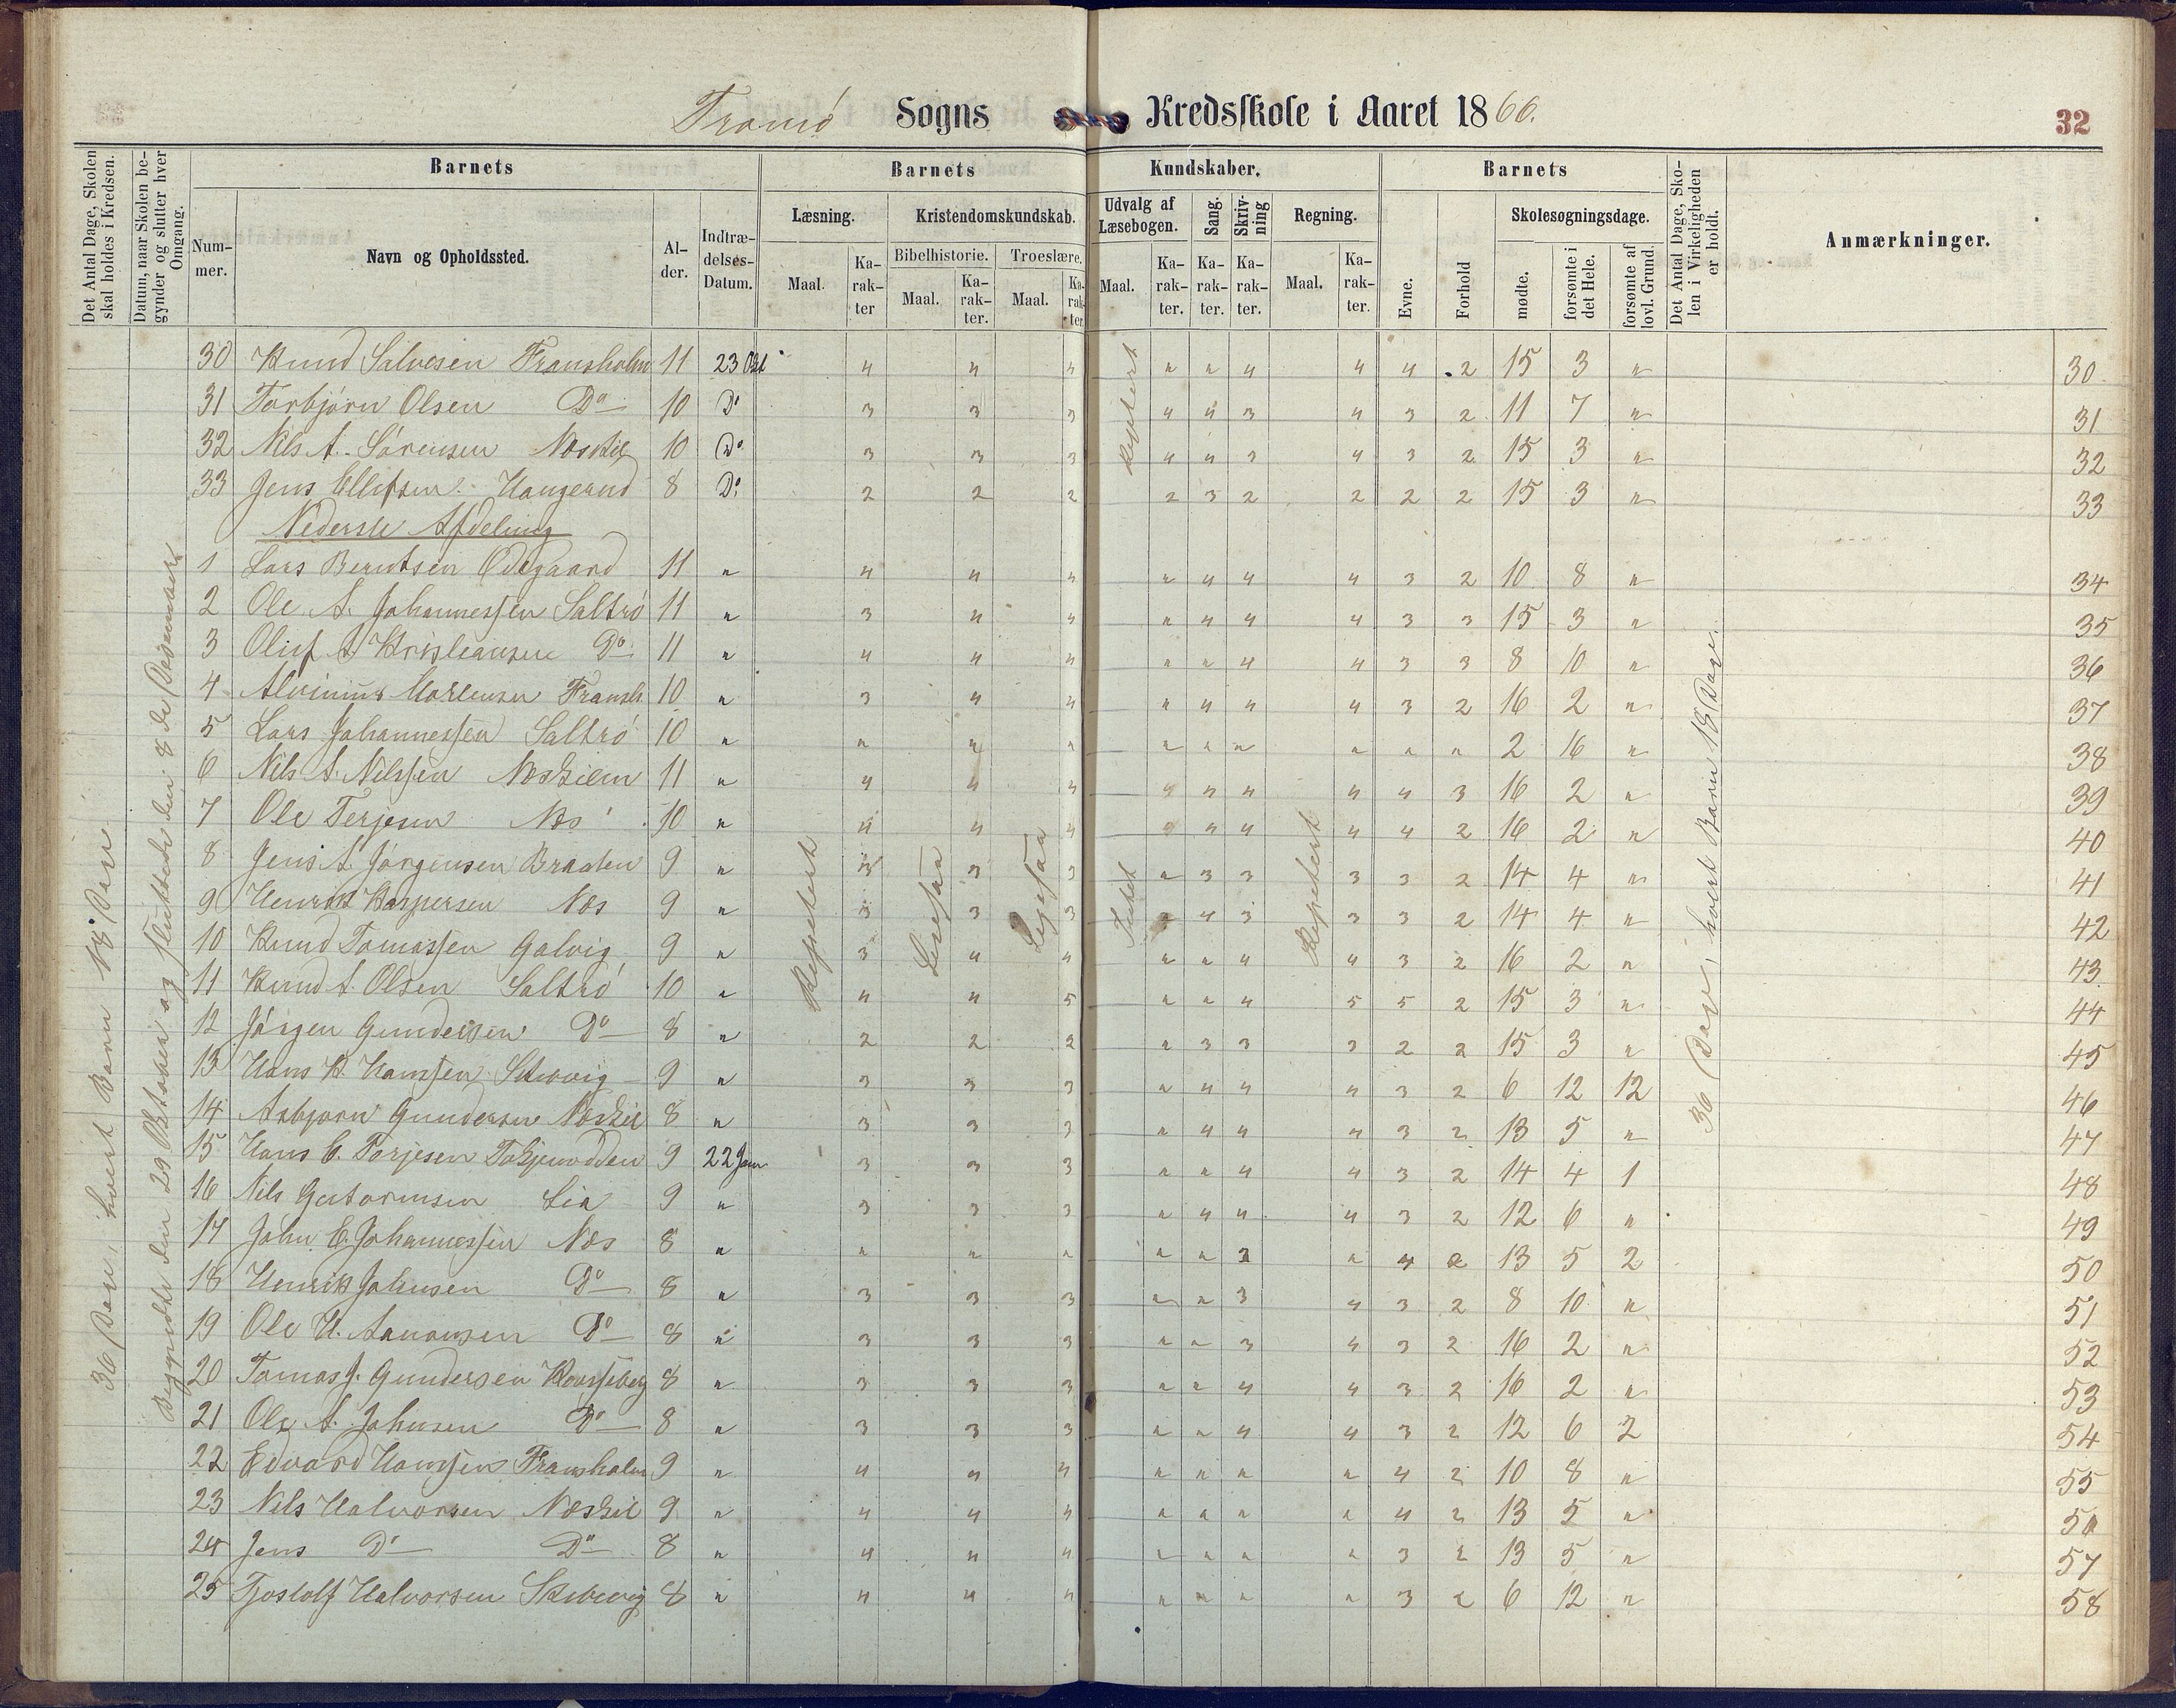 Tromö Sogns Kredsskole i Aaret 1866. 32
Det Antal Dage, Skolen skal holdes i Kredsen.
Datum, naar Skolen begynder og slutter hver Omgang.
Barnets Barnets Kundskaber. Barnets
Det Antal Dage, Skolen i Virkeligheden er holdt.
Anmærkninger.
Nummer. Navn og Opholdssted. Alder. Indtrædelses-Datum.
Læsning. Kristendomskundskab. Udvalg af Læsebogen. Sang. Skrivning Regning. Evne. Forhold Skolesøgningsdage.
Bibelhistorie. Troeslære.
Maal. Karakter Maal. Karakter. Maal. Karakter. Maal. Karakter. Karakter. Karakter. Maal. Karakter. mødte. forsømte i det Hele. forsømte af lovl. Grund.
36 Dage, hvert Barn 18 Dage.
Begyndte den 29 Oktober og sluttede den 8de December
Repetert
Læsesaa
Repetert
36 Dage, hvert Barn 18 Dage.
30 Knud Salvesen Fransholm 11 23 Okt 4 4 4 " " 4 4 4 2 15 3 " 30
31 Torbjörn Olsen Do 10 Do 3 3 3 4 4 3 4 3 2 11 7 " 31
32 Nils A. Sörensen Næskil 10 Do 3 3 3 4 4 3 4 3 2 15 3 " 32
33 Jens Ellefsen Haugerud 8 Do 2 2 2 2 3 2 2 2 2 15 3 " 33
Nederste Afdeling
1 Lars Berntsen Ödegaard 11 " 4 4 4 " 4 4 4 3 2 10 8 " 34
2 Ole A. Johannesen Saltrö 11 " 3 4 4 " 4 4 4 3 3 15 3 " 35
3 Oluf A Kristiansen Do 11 " 4 4 4 " " 4 4 3 3 8 10 " 36
4 Alvinius Mortensen Fransh. 10 " 3 4 4 " 4 4 4 3 2 16 2 " 37
5 Lars Johannessen Saltrö 10 " " " " " " " " " " 2 16 " 38
6 Nils A. Nilssen Næskilen 11 " 4 4 4 4 4 4 4 4 3 16 2 " 39
7 Ole Terjesen Næs 10 " 4 4 4 4 4 4 4 2 16 2 " 40
8 Jens A. Jörgensen Braaten 9 " 3 3 3 " 3 3 3 3 2 14 4 " 41
9 Henrik Kaspersen Næs 9 " 3 3 3 4 3 3 3 2 14 4 " 42
10 Knud Tomassen Galvig 9 " 3 4 4 " " 4 4 3 2 16 2 " 43
11 Knud A. Olsen Saltrö 10 " 4 4 5 " " 4 5 5 2 15 3 " 44
12 Jörgen Gundersen Do 8 " 2 2 2 " 3 3 3 2 2 15 3 " 45
13 Hans K. Hanssen 9 " 3 3 3 " 4 4 4 3 2 6 12 12 46
14 Asbjørn Gundersen Næskil 8 " 3 3 3 " 4 4 4 3 2 13 5 " 47
15 Hans E. Terjesen 9 22 Jan 3 3 3 " " 4 4 3 2 14 4 1 48
16 Nils Guttormsen Lia 9 " 3 3 3 " 4 4 4 3 2 12 6 " 49
17 John E. Johannessen Næs 8 " " " " " " 3 " 4 2 13 5 2 50
18 Henrik Johnsen Do 8 " 3 3 3 " " 3 4 3 2 8 10 " 51
19 Ole H. Aanonsen Do 8 " 3 3 3 " " 3 4 3 2 16 2 " 52
20 Tomas J. Gundersen 8 " 3 3 3 " " 4 4 3 2 16 2 " 53
21 Ole A. Johnsen Do 8 " 3 3 3 " " 4 4 3 2 12 6 2 54
22 Edvard Hanssen Fransholm 9 " 4 4 4 " " " " 4 2 10 8 " 55
23 Nils Halvorsen Næskil 9 " 4 4 4 " " " " 4 2 13 5 " 56
24 Jens Do Do 8 " 4 4 4 " " " " 3 2 13 5 " 57
25 Tjostolf Halvorsen 8 " 4 4 4 " " " " 3 2 6 12 " 58